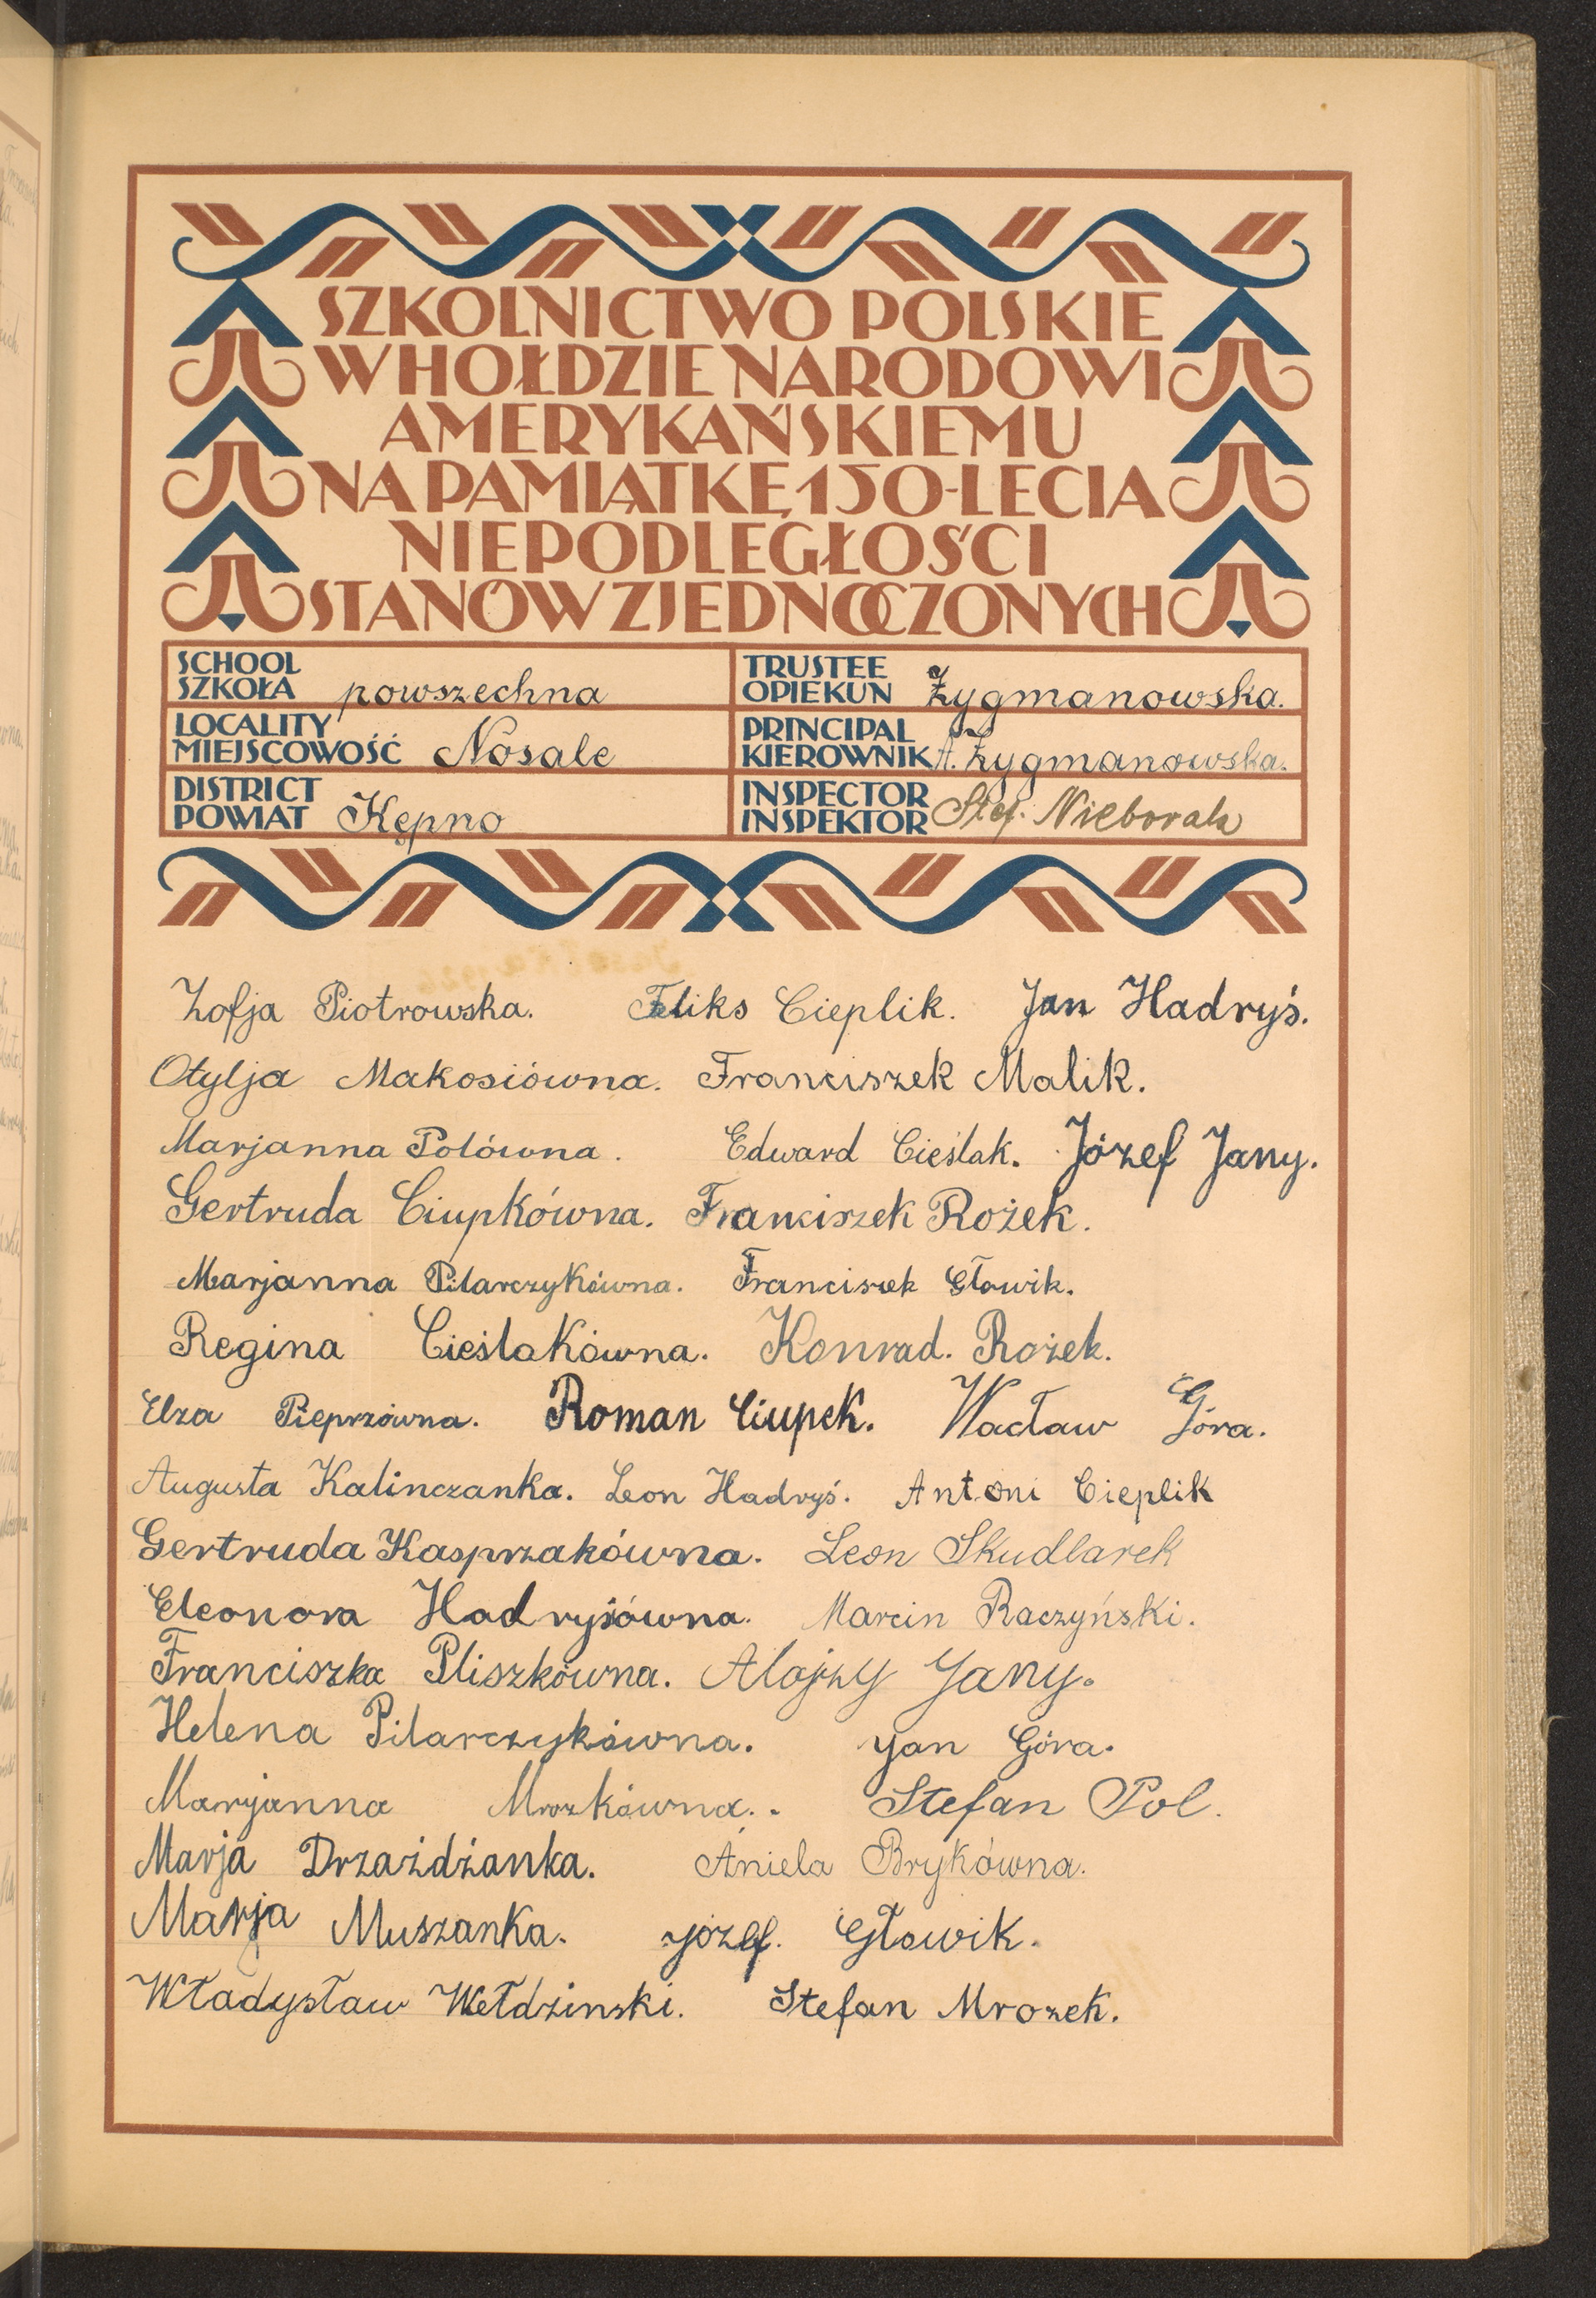 SZKOLNICTWO POLSKIE
W HOŁDZIE NARODOWI
AMERYKAŃSKIEMU
NA PAMIĄTKĘ 150-LECIA
NIEPODLEGŁOŚCI
STANÓW ZJEDNOCZONYCH
SCHOOL
SZKOŁA powszechna
TRUSTEE
OPIEKUN Żygmanowska.
LOCALITY
MIEJSCOWOŚĆ Nosale
PRINCIPAL
KIEROWNIK A. Żygmanowska.
DISTRICT
POWIAT Kępno
INSPECTOR
INSPEKTOR Stef. Nieborak
Zofja Piotrowska. Feliks Cieplik. Jan Hadryś.
Otylja Makosiówna. Franciszek Malik.
Marjanna Polówna. Edward Cieślak. Józef Jany.
Gertruda Ciupkówna. Franciszek Rożek.
Marjanna Pilarczykówna. Franciszek Głowik.
Regina Cieślakówna. Konrad. Rożek.
Elza Pieprzówna. Roman Ciupek. Wacław Góra.
Augusta Kalinczanka. Leon Hadryś. Antoni Cieplik
Gertruda Kasprzakówna. Leon Skudlarek
Eleonora Hadrysiówna. Marcin Raczyński.
Franciszka Pliszkówna. Alojzy Jany.
Helena Pilarczykówna. Jan Góra.
Maryanna Mrozkówna. Stefan Pol.
Marja Drzażdżanka. Aniela Brykówna.
Marja Muszanka. Józef. Głowik.
Władysław Wełdzinski. Stefan Mrozek.